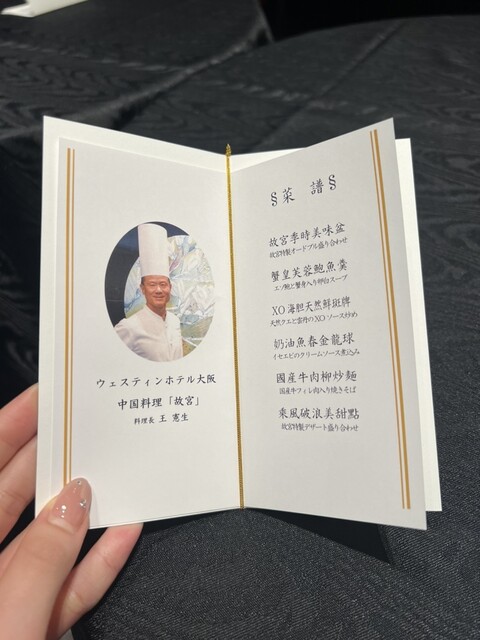 ウェスティンホテル大阪
中国料理「故宮」
料理長 王 憲生
§菜 譜§
故宮季時美味盆
故宮特製オードブル盛り合わせ
蟹皇芙蓉鮑魚羹
エゾ鮑と蟹身入り卵白スープ
XO海胆天然鮮斑牌
天然クエと雲丹のXOソース炒め
奶油魚春金龍球
イセエビのクリームソース煮込み
國産牛肉柳炒麵
国産牛フィレ肉入り焼きそば
乗風破浪美甜點
故宮特製デザート盛り合わせ